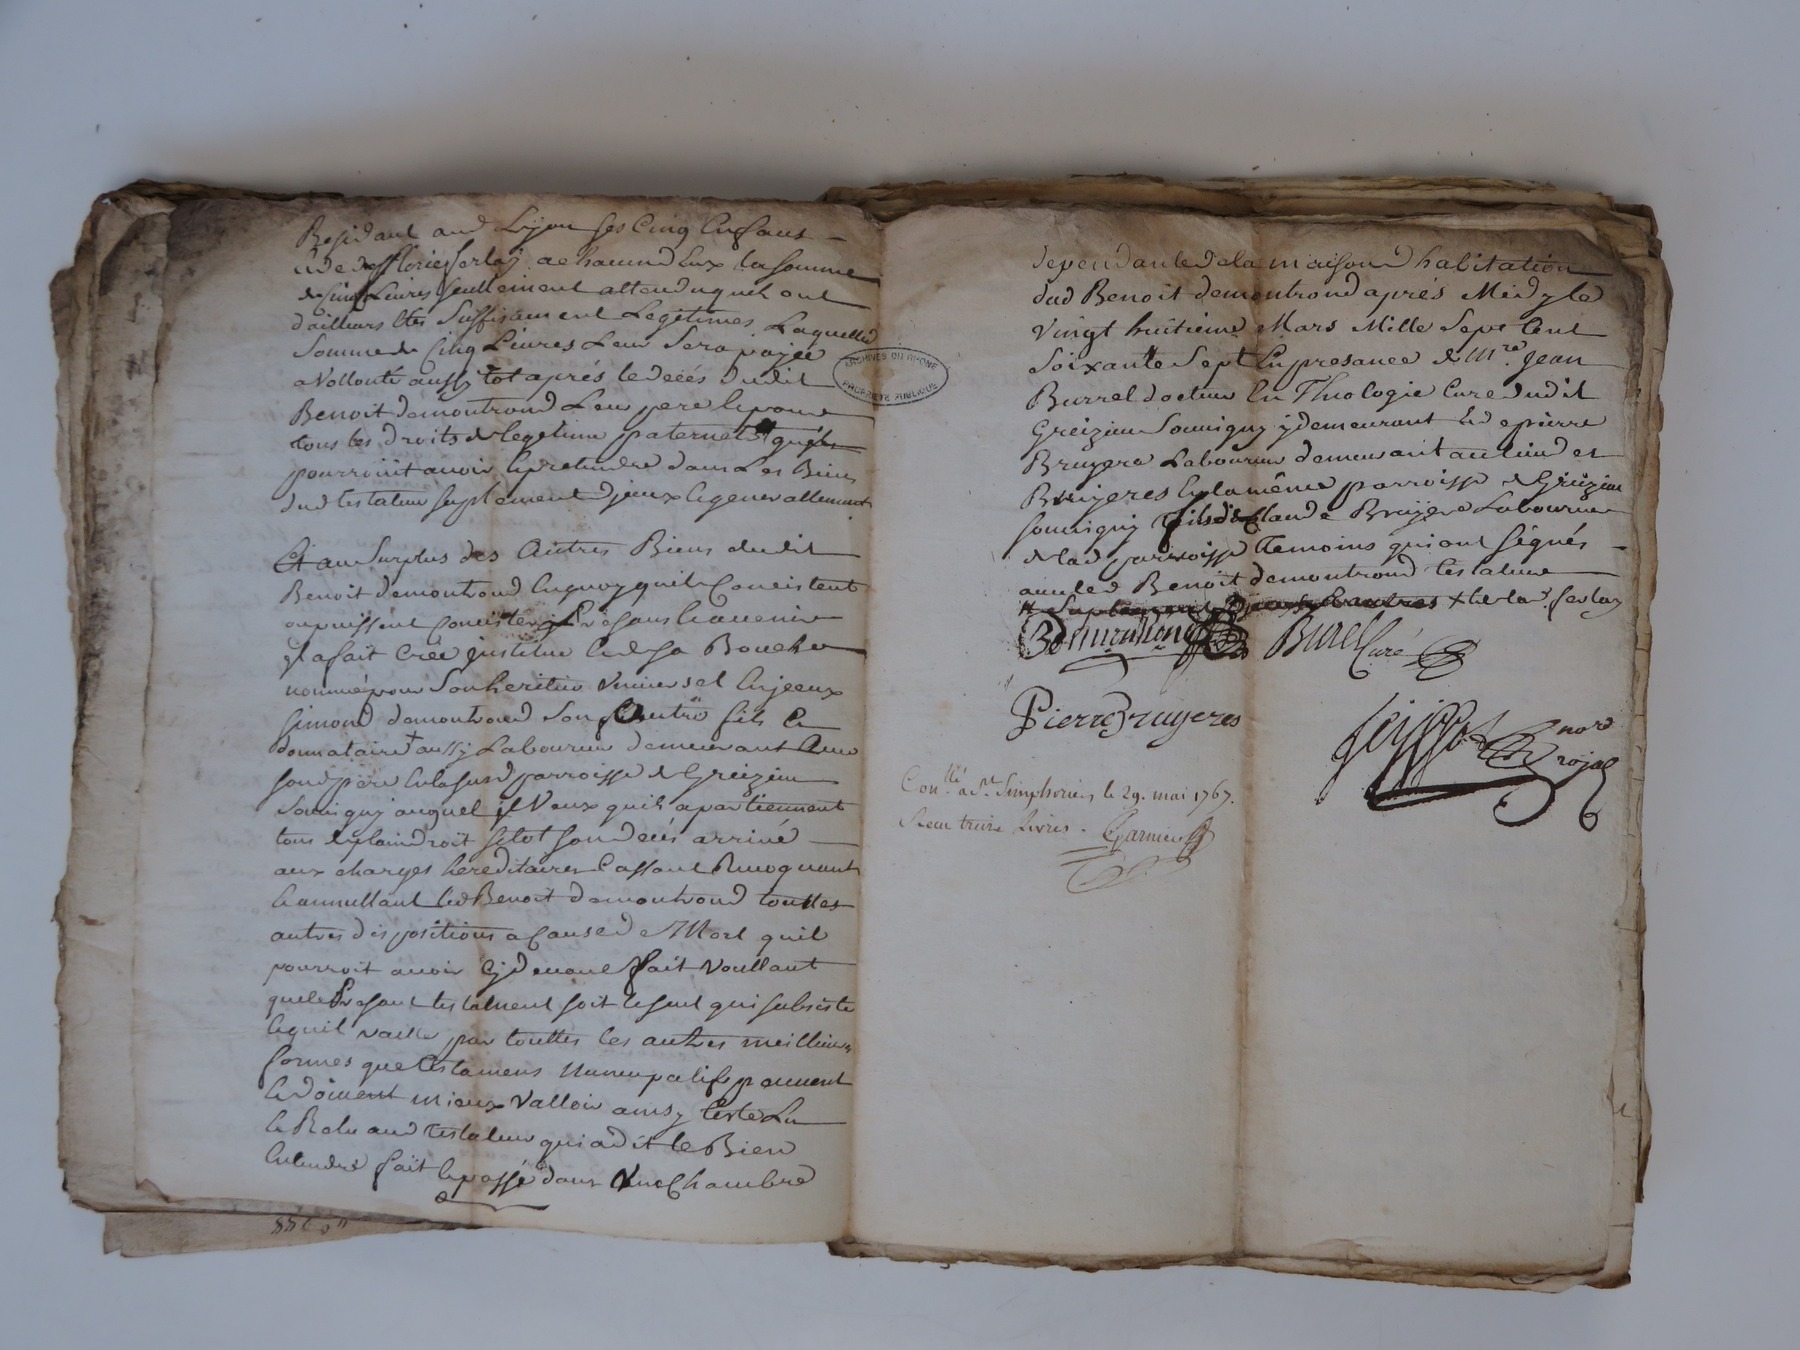 Residant aud Lyon ses Cinq Enfans
et de florie ferlay a chacun d'Eux la somme
de Cinq Livres seullement attendu quels ont
d'ailleurs Etes suffisament Legitimes Laquelle
somme de Cinq Livres Leur sera payée
a Vollonté aussy tot aprés le decés dudit
Benoit demontrond Leur pere Et pour
tous les droits de legitime paternels quils
pourroint avoir Et pretendre dans Les Biens
dud testateur suplement d'jceux Et generallement
Et au surplus des Autres Biens dudit
Benoit demontrond En quoy quils Consistent
ou puissent Consister Presans Et avenir
jl a fait Créé jnstitue Et de sa Bouche
nommé pour son heritier Universel En jceux
simond demontrond son autre fils Et
donnataire aussy Laboureur demeurant avec
sond pere En la susd parroisse de Greizieu
souvigny auquel il Veux quils apartiennent
tous de plain droit sitot son decés arrivé
aux charges hereditaires Cassant Revoquant
Et annullant led Benoit demontrond touttes
autres dispositions a Cause de Mort quil
pourroit avoir Cy devant fait Voullant
que le Presant testament soit le seul qui subsiste
Et quil vaille par touttes les autres meillieures
formes que testamens Nuncupatifs peuvent
Et doivent mieux Valloir ainsy testé Lu
Et Relu aud testateur qui a dit le Bien
Entendre fait Et passé dans Une Chambre
ARCHIVES DU RHONE
PROPRIETE PUBLIQUE
dependante de la maison d'habitation
dud Benoit demontrond aprés Midy le
Vingt huitieme Mars Mille Sept Cent
Soixante Sept En presance de Mre Jean
Burrel docteur En Theologie Curé dudit
Greizieu Souvigny y demeurant Et de pierre
Bruyere Laboureur demeurant au lieu des
Bruyeres En la même parroisse de Greizieu
souvigny fils de Claude Bruyere Laboureur
de lad parroisse temoins qui ont signés
avec led Benoit demontrond testateur
+ et lad. ferlay
BDemontrond Burel Curé
Pierre Bruyeres
nore
royal
Conllé à St. Simphorien, le 29. mai 1767.
Reçu treize livres. Garnier